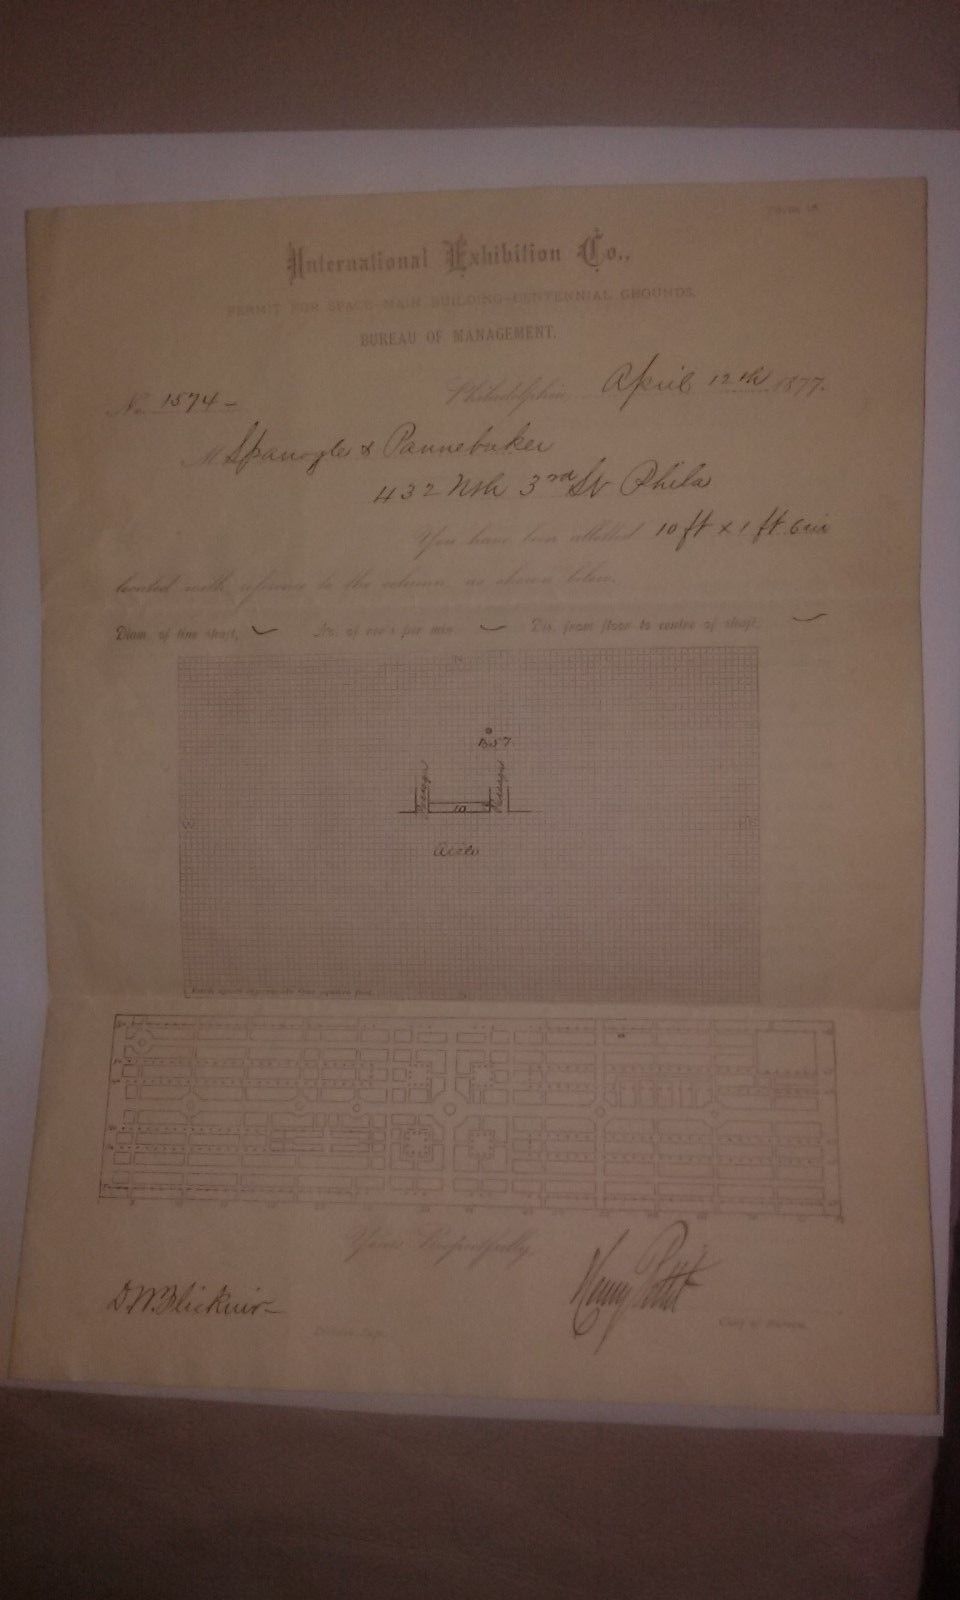 International Exhibition Co.,
PERMIT FOR SPACE-MAIN BUILDING-CENTENNIAL GROUNDS.
BUREAU OF MANAGEMENT.
No. 1574- Philadelphia April 12th 1877.
M Spanogle & Pannebaker
432 Nth 3rd St Phila
You have been allotted 10 ft x 1 ft 6 in
located with reference to the column as shown below.
Diam. of line shaft, No. of rev's per min. Dis. from floor to centre of shaft,
N
B57
Passage Passage
10
Aisle
Each square represents one square foot.
Yours Respectfully,
Henry Pettit
Chief of Bureau.